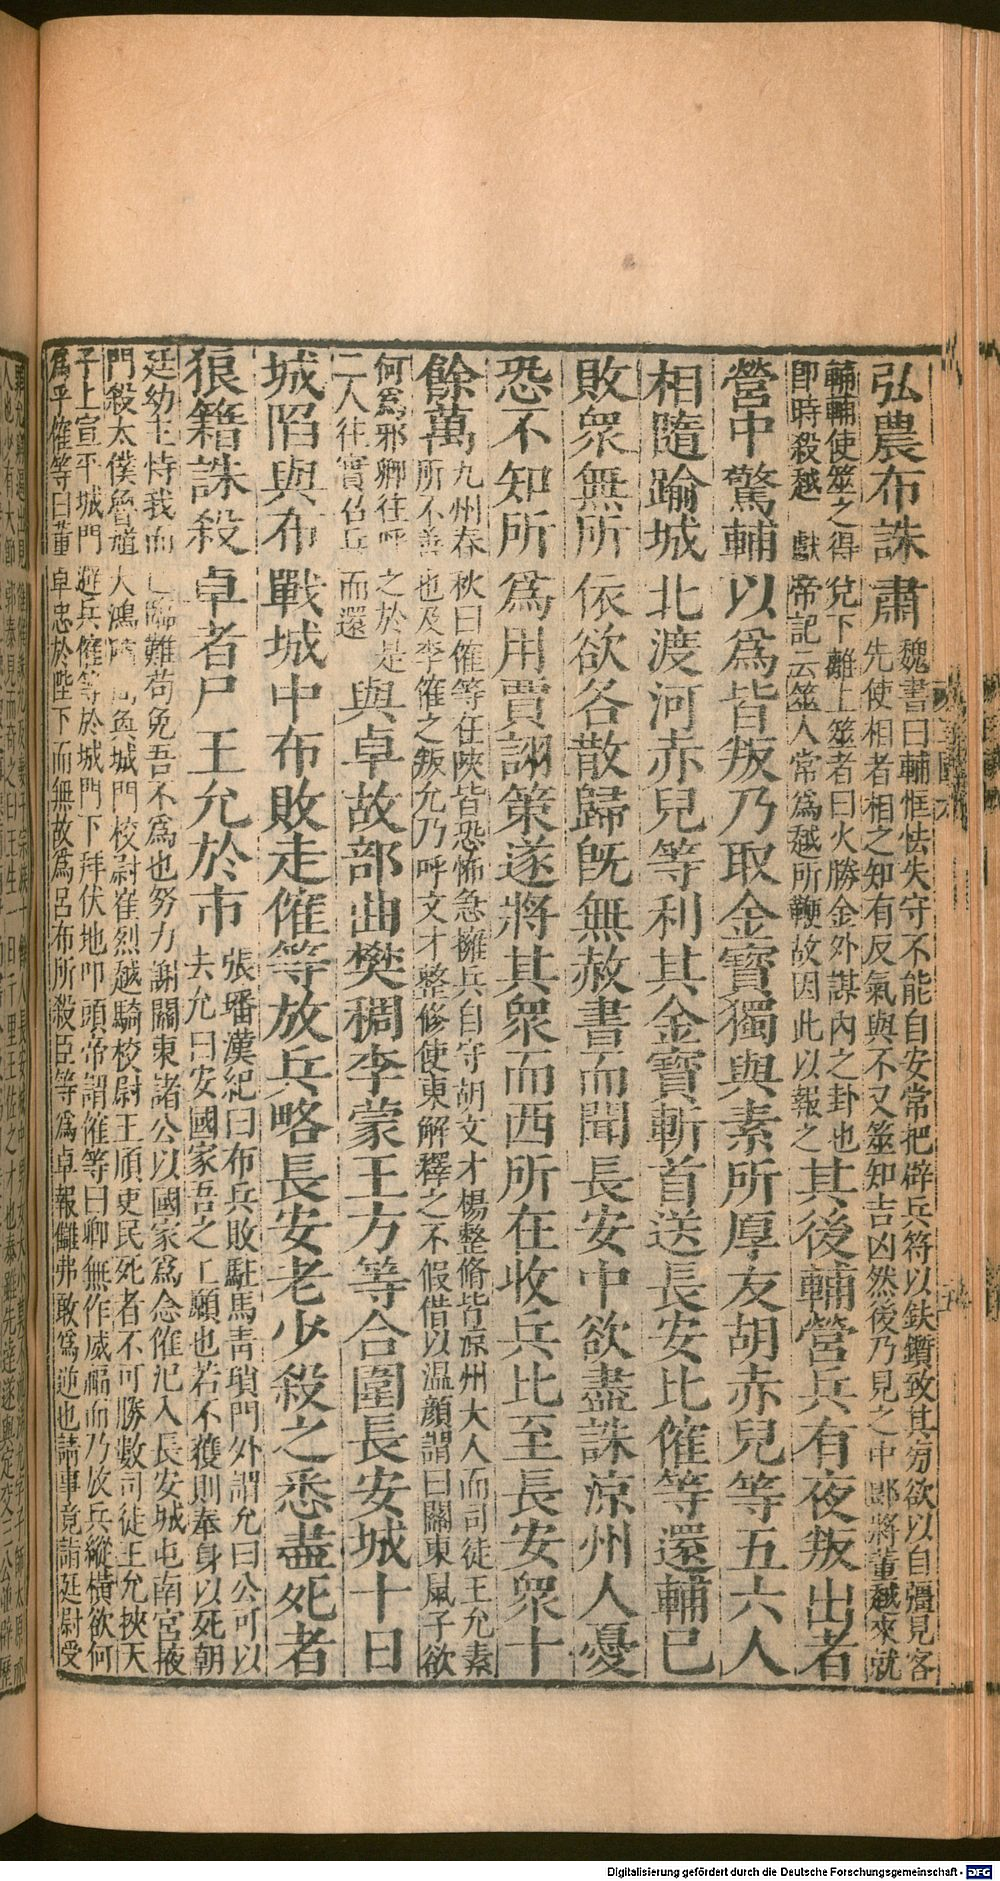 弘農布誅肅魏書曰輔恇怯失守不能自安常把辟兵符以鈇鑕致其旁欲以自彊見客
先使相者相之知有反氣與不又筮知吉凶然後乃見之中郎將董越來就
輔輔使筮之得兌下離上筮者曰火勝金外謀內之卦也
即時殺越獻帝記云筮人常爲越所鞭故因此以報之其後輔營兵有夜叛出者
營中驚輔以爲皆叛乃取金寶獨與素所厚友胡赤兒等五六人
相隨踰城北渡河赤兒等利其金寶斬首送長安比傕等還輔已
敗衆無所依欲各散歸旣無赦書而聞長安中欲盡誅涼州人憂
恐不知所爲用賈詡策遂將其衆而西所在收兵比至長安衆十
餘萬九州春秋曰傕等在陝皆恐怖急擁兵自守胡文才楊整脩皆凉州大人而司徒王允素
所不善也及李傕之叛允乃呼文才整修使東解釋之不假借以溫顏謂曰關東鼠子欲
何爲邪卿往呼之於是
二人往實召兵而還與卓故部曲樊稠李蒙王方等合圍長安城十日
城陷與布戰城中布敗走傕等放兵略長安老少殺之悉盡死者
狼籍誅殺卓者尸王允於市張璠漢紀曰布兵敗駐馬青瑣門外謂允曰公可以
去允曰安國家吾之上願也若不獲則奉身以死朝
廷幼主恃我而已臨難苟免吾不爲也努力謝關東諸公以國家爲念傕汜入長安城屯南宮掖
門殺太僕魯馗大鴻臚周奐城門校尉崔烈越騎校尉王頎吏民死者不可勝數司徒王允挾天
子上宣平城門避兵傕等於城門下拜伏地叩頭帝謂傕等曰卿無作威福而乃放兵縱橫欲何
爲乎傕等曰董卓忠於陛下而無故爲呂布所殺臣等爲卓報讎弗敢爲逆也請事竟詣廷尉受
Digitalisierung gefördert durch die Deutsche Forschungsgemeinschaft - DFG